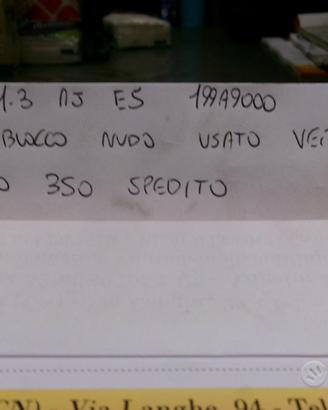 1.3 MJ ES 199A9000
BLOCCO NUDO USATO VER
O 350 SPEDITO
CN) - Via Langhe, 94 - Tel